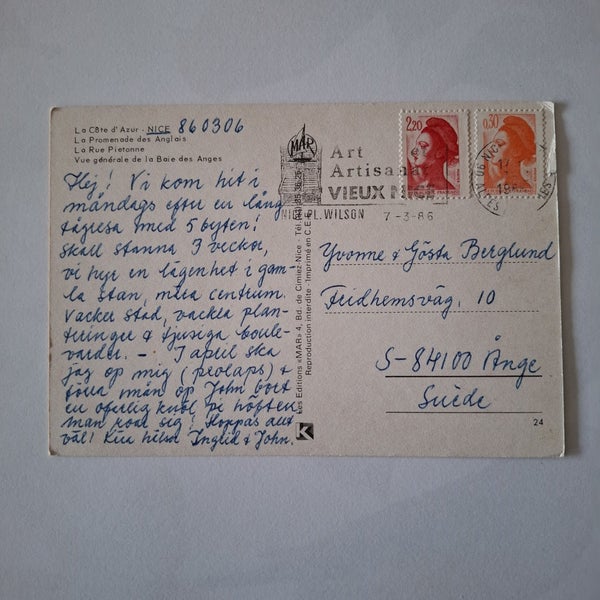 La Côte d'Azur - NICE 860306
La Promenade des Anglais
La Rue Pietonne
Vue générale de la Baie des Anges
Hej! Vi kom hit i
måndags efter en lång
tågresa med 5 byten!
Skall stanna 3 veckor,
vi hyr en lägenhet i gam-
la stan, nära centrum.
Vacker stad, vackra plan-
teringar & tjusiga boule-
varder. — I april ska
jag op mig (prolaps) &
förra mån op John bort
en ofarlig knöl på höften
man roar sig! Hoppas allt
väl! Kära hälsn Inglid & John.
Les Editions «MAR» 4, Bd. de Cimiez - Nice - Tél.
Reproduction interdite - Imprimé en C.E.E.
MAR
Art
Artisanat
VIEUX NICE
NICE PL. WILSON 7-3-86
2,20
0,30
NICE
Yvonne & Gösta Berglund
Fridhemsväg. 10
S-84100 Ånge
Suède
K
24